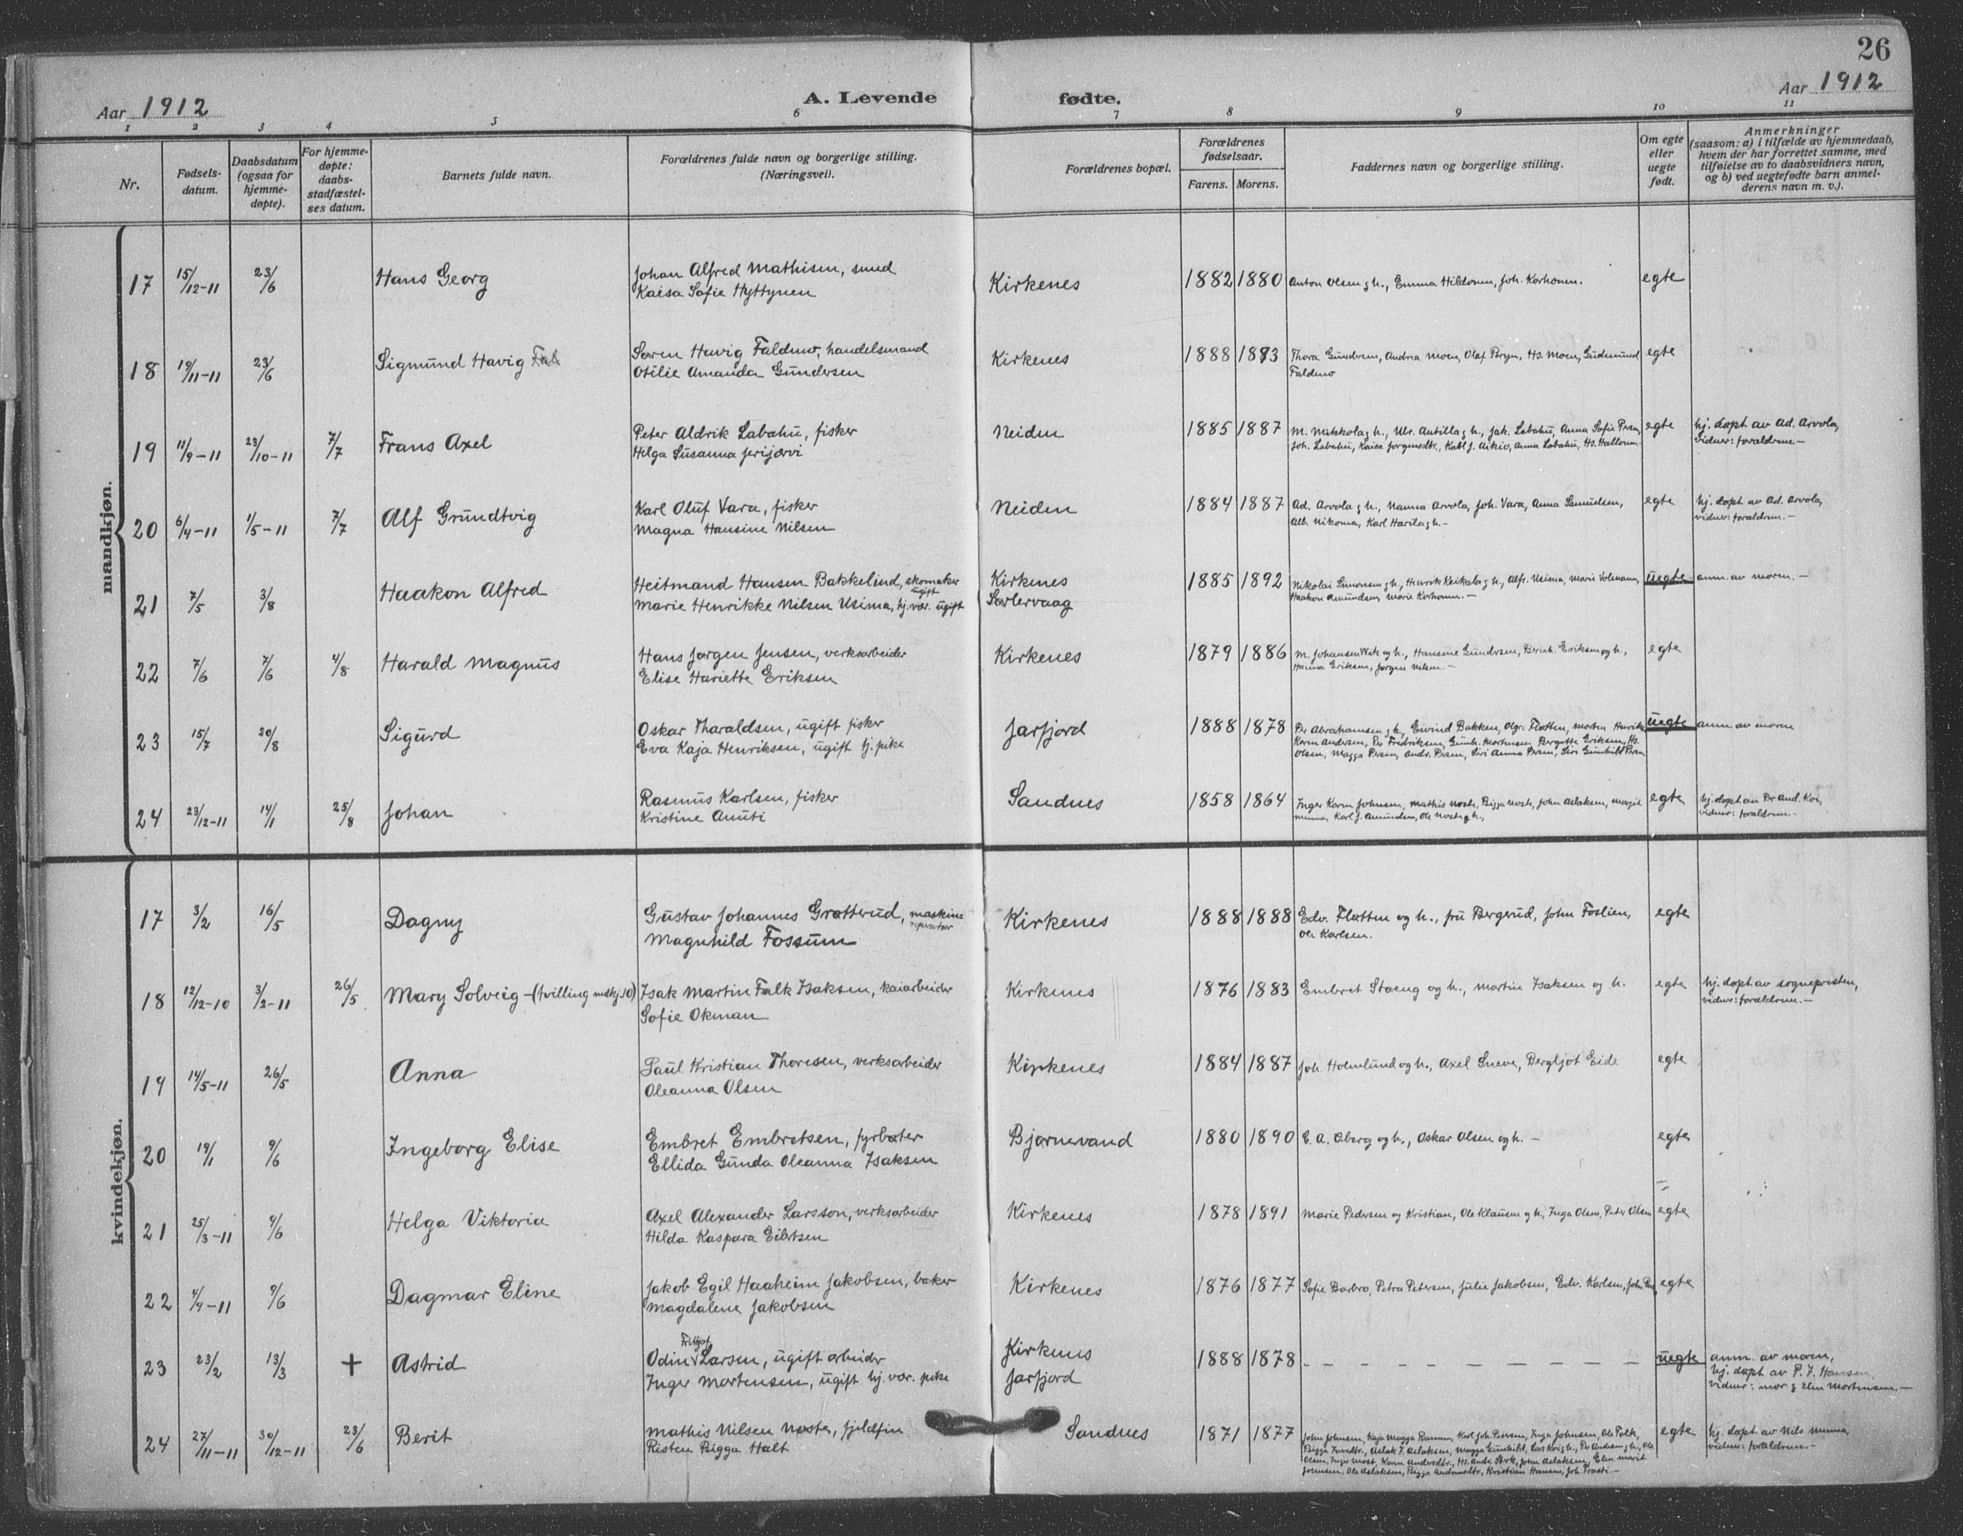 26
Aar 1912
A. Levende fødte.
Aar 1912
1 2 3 4 5 6 7 8 9 10 11
Nr.
Fødsels-
datum.
Daabsdatum
(ogsaa for
hjemme-
døpte).
For hjemme-
døpte:
daabs-
stadfæstel-
ses datum.
Barnets fulde navn.
Forældrenes fulde navn og borgerlige stilling.
(Næringsvei).
Forældrenes bopæl.
Forældrenes
fødselsaar.
Farens. Morens.
Faddernes navn og borgerlige stilling.
Om egte
eller
uegte
født.
Anmerkninger
(saasom: a) i tilfælde av hjemmedaab,
hvem der har forrettet samme, med
tilføielse av to daabsvidners navn,
og b) ved uegtefødte barn anmel-
derens navn m. v.).
mandkjøn.
17 15/12-11 23/6 Hans Georg Johan Alfred Mathisen, smed Kirkenes 1882 1880 Anton Olsen g h., Emma Hildonen, Joh. Korhonen. egte
Kaisa Sofie Hyttynen
18 19/11-11 23/6 Sigmund Havig Fal Søren Havig Faldmo, handelsmand Kirkenes 1888 1883 Thora Gundersen, Andrea Moen, Olaf Bryn, Hs. Moen, Gudmund egte
Otilie Amanda Gundersen Faldmo
19 11/9-11 23/10-11 7/7 Frans Axel Peter Aldrik Labahü, fisker Neiden 1885 1887 Antilla g h., Jak. Labahü, Anna Sofie egte hj. døpt av Ad. Arvola,
Helga Susanna Jerijærvi Joh. Labahü, Kaisa Aikio, Anna Labahü, vidner: forældrene.-
20 6/4-11 1/5-11 7/7 Alf Grundtvig Karl Oluf Vara, fisker Neiden 1884 1887 Ad. Arvola g h., Nanna Arvola, Joh. Vara, Anna Samuelsen, egte hj. døpt av Ad. Arvola,
Magna Hansine Nilsen Alb. Nikoma, Karl Harila g h.- vidner: forældrene.-
21 7/5 3/8 Haakon Alfred Heitmand Hansen Bakkelind, skomaker ugift Kirkenes 1885 1892 Nikolai Simonsen g h., Henrik Keikala g h., Alfr. Usima, Marie uegte anm. av moren.-
Marie Henrikke Nilsen Usima, hj. vær. ugift Sørlervaag Haakon Amundsen, Marie Korhonen.-
22 7/6 7/6 4/8 Harald Magnus Hans Jørgen Jensen, verksarbeider Kirkenes 1879 1886 M. Johansen og h., Hansine Gundersen, Bernh. Eriksen og h., egte
Elise Hariette Eriksen Hanna Eriksen, Jørgen Nilsen.-
23 15/7 20/8 Sigurd Oskar Tharaldsen, ugift fisker Jarfjord 1888 1878 Pr Abrahamsen g h., Eivind Bakken, Olga Flatten, Morten uegte anm. av moren
Eva Kaja Henriksen, ugift hj. pike Karen Andersen, Pr Fredriksen, Gunh. Mortensen, Bergitte Eriksen, Hs.
Olsen, Magga Persen, Andr. Persen, Siri Anna Persen, Siri Gunhild Persen
24 23/12-11 14/1 25/8 Johan Rasmus Karlsen, fisker Sandnes 1858 1864 Inger Karen Johnsen, Mathis Noste, Bigga Noste, John Aslaksen, Margit egte hj. døpt av Pr And. Koi,
Kristine Anuti Minna, Karl J. Amundsen, Ole Noste g h., vidner: forældrene.-
kvindekjøn.
17 3/2 16/5 Dagny Gustav Johannes Grøtterud, maskinreparatør Kirkenes 1888 1888 Edv. Flatten og h., fru Bergerud, John Foslien, egte
Magnhild Fossum Ole Karlsen.
18 12/12-10 3/2-11 26/5 Mary Solveig - (tvilling mskj. 10) Isak Martin Falk Isaksen, kaiarbeider Kirkenes 1876 1883 Embret Staeng og h., Martin Isaksen og h. egte hj. døpt av sognepresten,
Sofie Okman vidner: forældrene.-
19 14/5-11 26/5 Anna Paul Kristian Thoresen, verksarbeider Kirkenes 1884 1887 Joh. Holmlund og h., Axel Sneve, Bergljot Eide egte
Oleanna Olsen
20 19/1 9/6 Ingeborg Elise Embret Embretsen, fyrbøter Bjørnevand 1880 1890 E. A. Øberg og h., Oskar Olsen og h.- egte
Ellida Gunda Oleanna Isaksen
21 25/3-11 9/6 Helga Viktoria Axel Alexander Larsson, verksarbeider Kirkenes 1878 1891 Marie Pedersen og Kristian, Ole Klausen og h., Inga Olsen, Peter Olsen egte
Hilda Kaspara Eilertsen
22 4/9-11 9/6 Dagmar Eline Jakob Egil Haaheim Jakobsen, baker Kirkenes 1876 1877 Sofie Barbro, Petra Petersen, Julie Jakobsen, Edv. Karlsen, egte
Magdalene Jakobsen
23 23/2 13/3 + Astrid Odin Fritjof Larsen, ugift arbeider Kirkenes 1888 1878 - - - - - - - - uegte anm. av moren,
Inger Mortensen, ugift hj. vær. pike Jarfjord hj. døpt av P. J. Hansen,
vidner: mor g Elen Mortensen.-
24 27/11-11 30/12-11 23/6 Berit Mathis Nilsen Noste, fjeldfin Sandnes 1871 1877 John Johnsen, Kaja Magga Karl Joh. Petersen, Inga Johnsen, Ole Polk, egte hj. døpt av Nils Minna,
Risten Bigga Halt Bigga Aslak J. Aslaksen, Magga Gunhild, Lars Koi g h., Pr Andersen g h., Ole vidner: forældrene.-
Olsen, Inger Karen Andersdtr., Hs. Andr. John Aslaksen, Elen Marit
Johnsen, Ole Aslaksen, Bigga Andersdtr., Kristian Hansen, Joh. Trasti.-